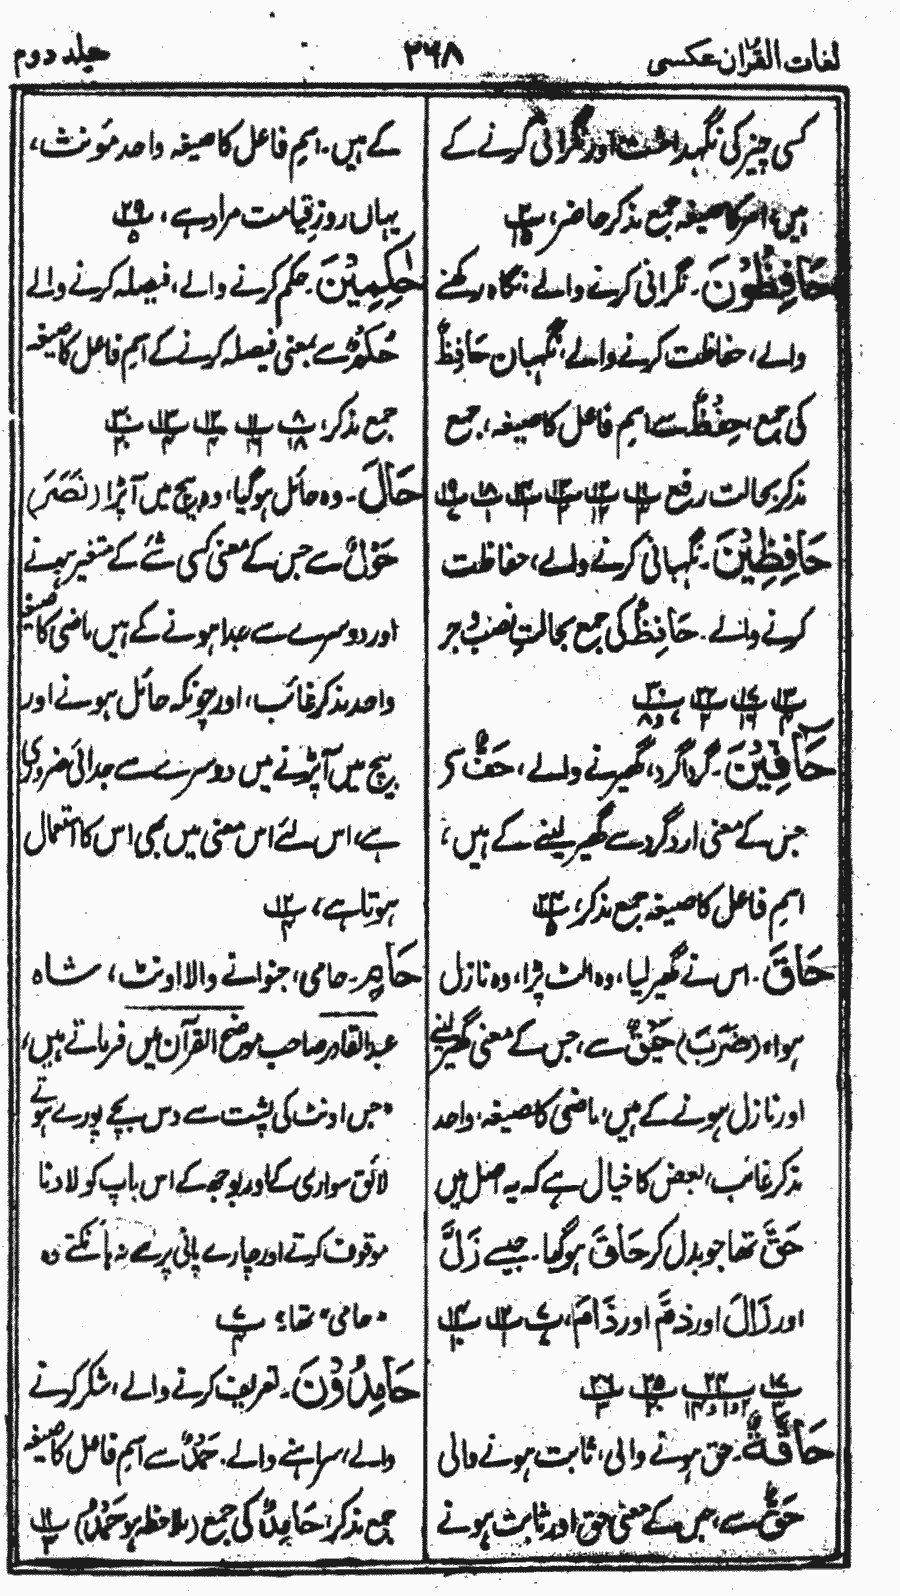 لغات القرآن عکسی
۲۶۸
جلد دوم
کسی چیز کی نگہداشت اور نگرانی کرنے کے
ہیں، امر کا صیغہ جمع مذکر حاضر، پ
حَافِظُونَ۔ نگرانی کرنے والے، نگاہ رکھنے
والے، حفاظت کرنے والے، نگہبان حَافِظٌ
کی جمع، حِفْظٌ سے اسم فاعل کا صیغہ، جمع
مذکر بحالت رفع
حَافِظِيْنَ۔ نگہبانی کرنے والے، حفاظت
کرنے والے۔ حَافِظٌ کی جمع بحالتِ نصب و جر
حَآفِّيْنَ۔ گرداگرد، گھیرنے والے، حَفٌّ سے
جس کے معنی اردگرد سے گھیر لینے کے ہیں،
اسم فاعل کا صیغہ جمع مذکر،
حَاقَ۔ اس نے گھیر لیا، وہ الٹ پڑا، وہ نازل
ہوا، (ضَرَبَ) حَيْقٌ سے، جس کے معنی گھیر لینے
اور نازل ہونے کے ہیں، ماضی کا صیغہ، واحد
مذکر غائب، بعض کا خیال ہے کہ یہ اصل میں
حَقَّ تھا جو بدل کر حَاقَ ہوگیا۔ جیسے زَلَّ
اور زَالَ اور ذَمَّ اور ذَامَ،
حَاقَّةٌ۔ حق ہونے والی، ثابت ہونے والی
حَقٌّ سے، جس کے معنی حق اور ثابت ہونے
کے ہیں۔ اسم فاعل کا صیغہ واحد مؤنث،
یہاں روزِ قیامت مراد ہے، پ
حٰكِمِيْنَ۔ حکم کرنے والے، فیصلہ کرنے والے
حُكْمٌ سے بمعنی فیصلہ کرنے کے اسم فاعل کا صیغہ
جمع مذکر،
حَالَ۔ وہ حائل ہوگیا، وہ بیچ میں آ پڑا (نَصَرَ)
حَوْلٌ سے جس کے معنی کسی شئے کے متغیر ہونے
اور دوسرے سے جدا ہونے کے ہیں ماضی کا صیغہ
واحد مذکر غائب، اور چونکہ حائل ہونے اور
بیچ میں آ پڑنے میں دوسرے سے جدائی ضروری
ہے، اس لئے اس معنی میں بھی اس کا استعمال
ہوتا ہے،
حَامٍ۔ حامی، جنوانے والا اونٹ، شاہ
عبدالقادر صاحب موضح القرآن میں فرماتے ہیں،
"جس اونٹ کی پشت سے دس بچے پورے ہوتے
لائق سواری کے اور بوجھ کے اس باپ کو لادنا
موقوف کرتے اور چارے پانی پر سے نہ ہانکتے وہ
"حامی" تھا،
حَامِدُوْنَ۔ تعریف کرنے والے، شکر کرنے
والے، سراہنے والے۔ حَمْدٌ سے اسم فاعل کا صیغہ
جمع مذکر، حَامِدٌ کی جمع (ملاحظہ ہو حَمْدٌ)